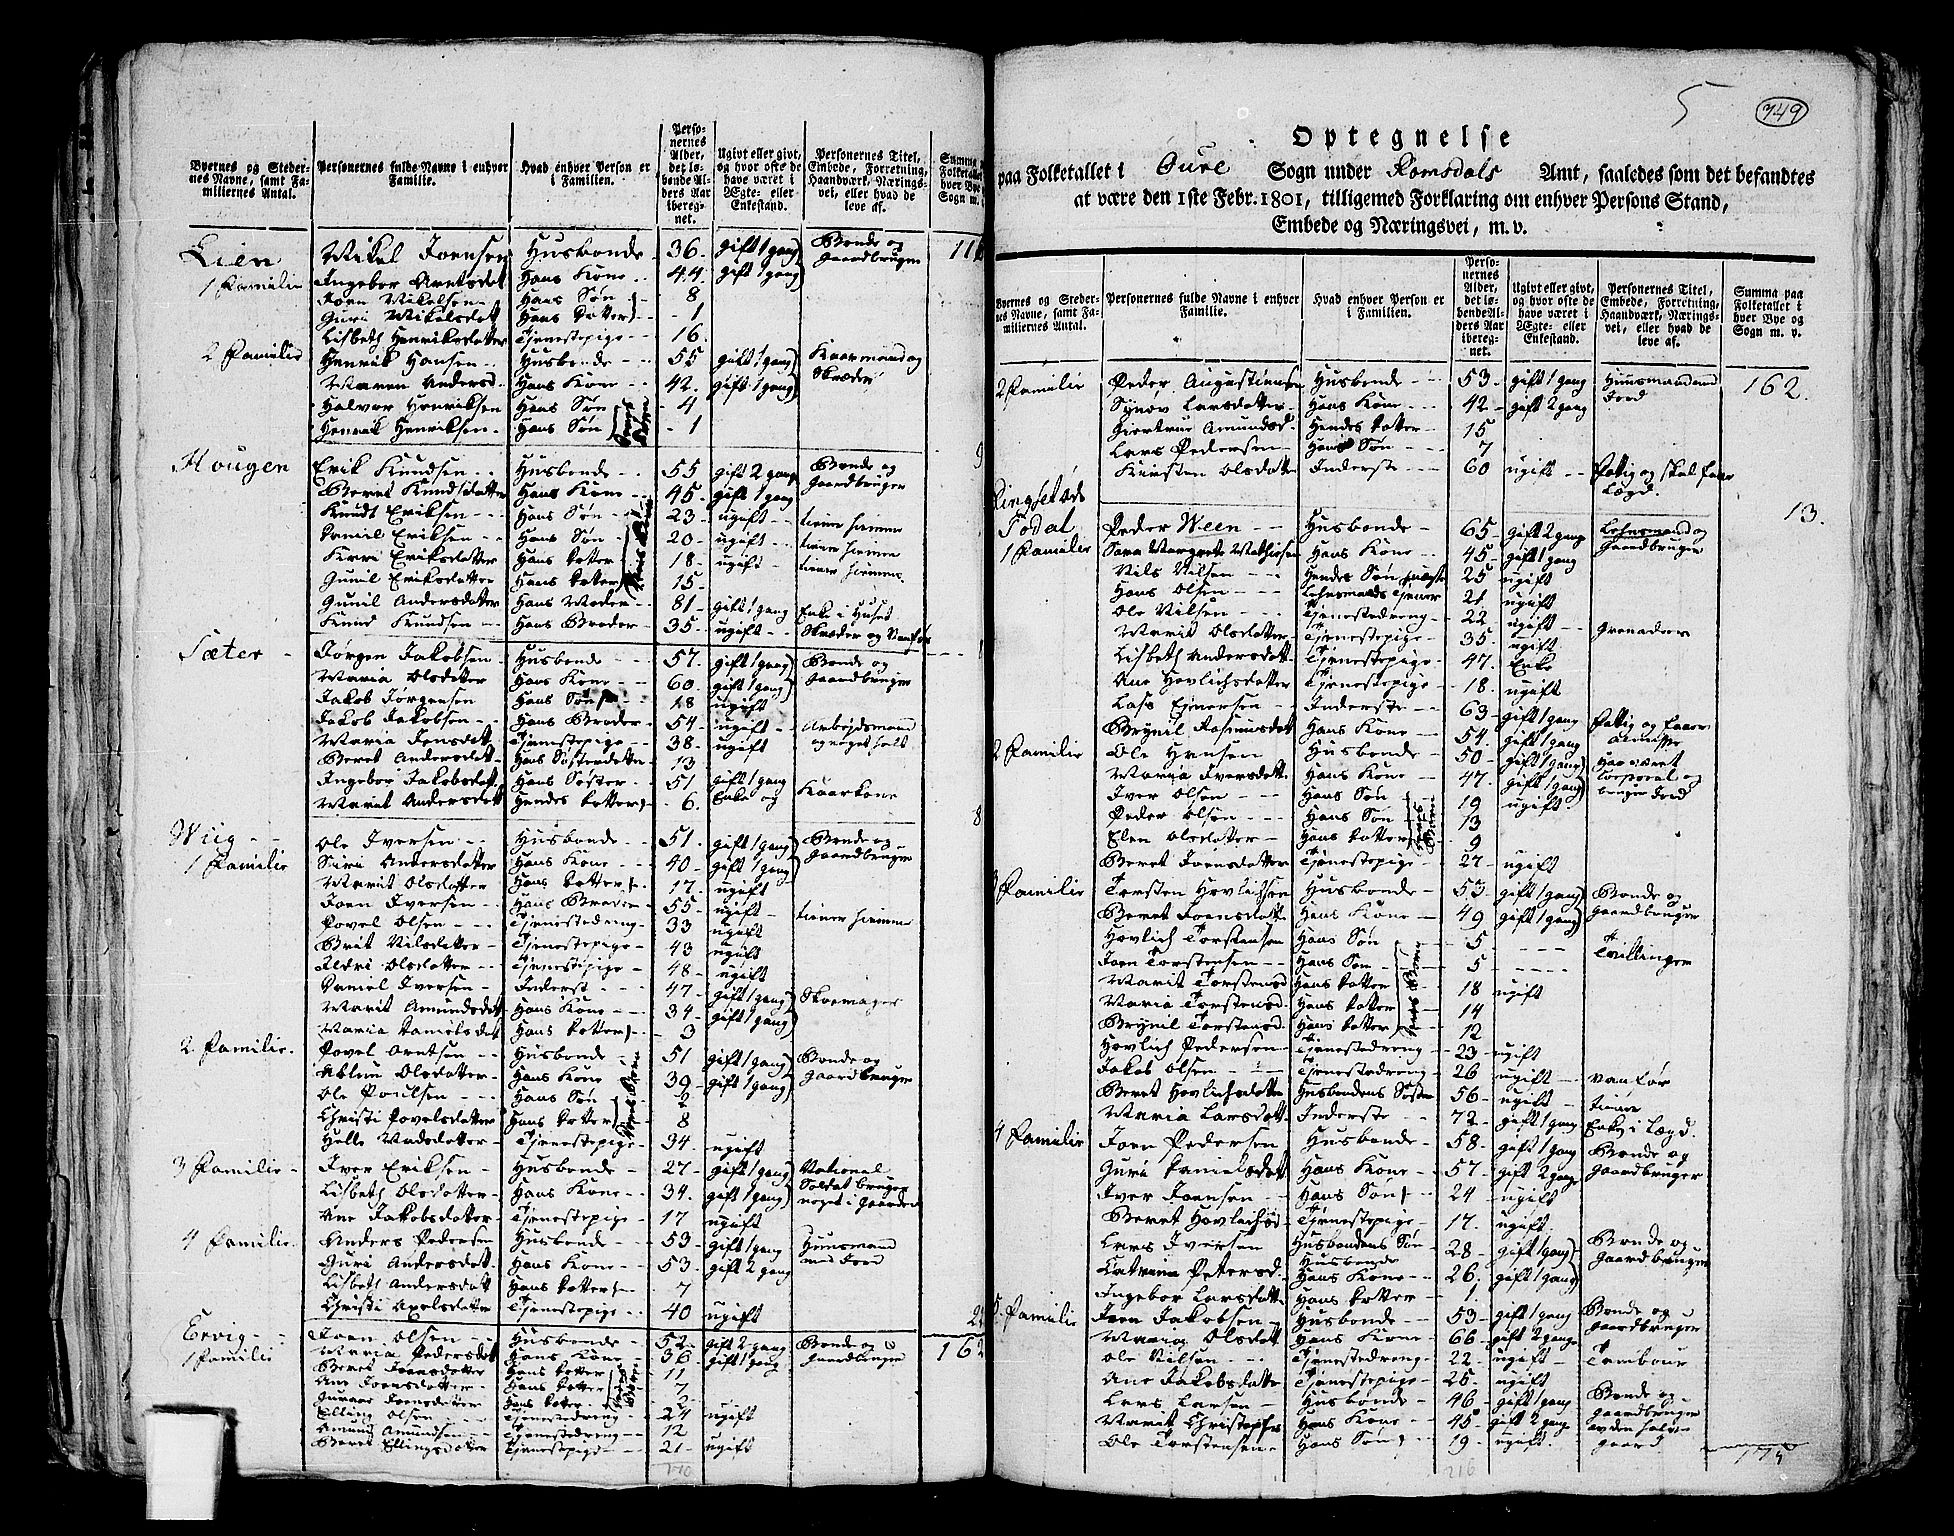 Byernes og Stedernes Navne, samt Familiernes Antal. | Personernes fulde Navne i enhver Familie. | Hvad enhver Person er i Familien. | Personernes Alder, det løbende Alders Aar iberegnet. | Ugivt eller givt, og hvor ofte de have været i Ægte- eller Enkestand. | Personernes Titel, Embede, Forretning, Haandværk, Næringsvei, eller hvad de leve af. | Summa Folketallet hver Bye Sogn m.
Lien Mikel Joensen Husbonde 36 gift 1 gang Bonde og Gaardbruger 116
1 Familie Ingebor Arntsdot Hans Kone 44 gift 1 gang
Joen Mikelsen Hans Søn 8
Guri Mikelsdott Hans Dotter 1
Lisbeth Henriksdotter Tjenestepige 16
2 Familie Henrik Hansen Husbonde 55 gift 1 gang Kaarmand og Skræder
Maren Andersd. Hans Kone 42 gift 1 gang
Halvor Henriksen Hans Søn 4
Henrik Henriksen Hans Søn 1
Hougen Erik Knudsen Husbonde 55 gift 2 gang Bonde og Gaardbruger 9
Beret Knudsdotter Hans Kone 45 gift 1 gang
Knudt Eriksen Hans Søn 23 ugift tiener hiemme
Daniel Eriksen Hans Søn 20 ugift tiener hiemme
Kari Eriksdotter Hans Dotter 18 ugift tiener hiemme
Gunil Eriksdotter Hans Dotter 15
Gunil Andersdotter Hans Moder 81 gift 1 gang Enke i Huset
Knud Knudsen Hans Broder 35 ugift Skræder og Vanfør
Sæter Jørgen Jakobsen Husbonde 57 gift 1 gang Bonde og Gaardbruger
Maria Olsdotter Hans Kone 60 gift 1 gang
Jakob Jørgensen Hans Søn 18 ugift
Jakob Jakobsen Hans Broder 54 ugift Arbejdsmand
Maria Jensdot Tjenestepige 38 ugift
Beret Andersdot Hans Søsterdotter 13
Ingebor Jakobsdot Hans Søster 51 gift 1 gang Enke og Kaarkone
Marit Andersdott Hendes Dotter 6 8
Wiig Ole Iversen Husbonde 51 gift 1 gang Bonde og Gaardbruger
1 Familie Siri Andersdotter Hans Kone 40 gift 1 gang
Marit Olsdotter Hans Dotter 17 ugift
Joen Iversen Hans Broder 55 ugift tiener hiemme
Povel Olsen Tjenestedreng 33 ugift
Brit Nilsdotter Tjenestepige 43 ugift
Ildri Olsdotter Tjenestepige 48 ugift
Daniel Iversen Inderst 47 gift 1 gang Skomager
Marit Amundsdot Hans Kone 34 gift 1 gang
Maria Danielsdot Hans Dotter 3
2 Familie Povel Arntsen Husbonde 51 gift 1 gang Bonde og Gaardbruger
Olsdotter Hans Kone 39 gift 1 gang
Ole Poulsen Hans Søn
Christi Povelsdotter Hans Dotter 8
Helle Madsdotter Tjenestepige 34 ugift
3 Familie Iver Eriksen Husbonde 27 gift 1 gang National Soldat bruger noget i Gaarden
Lisbeth Olsdotter Hans Kone 34 gift 1 gang
Ane Jakobsdotter Tjenestepige 17 ugift
4 Familie Anders Pedersen Husbonde 53 gift 1 gang Huusmand med Jord
Guri Andersdott Hans Kone 53 gift 2 gang
Lisbeth Andersdott Hans Dotter 7
Christi Axelsdotter Tjenestepige 40 ugift
Ervig Joen Olsen Husbonde 52 gift 2 gang Bonde og Gaardbruger 162
1 Familie Maria Pedersdot Hans Kone 36 gift 1 gang
Beret Joensdotter Hans Dotter 11
Ane Joensdotter Hans Dotter 7
Joensdotter Hans Dotter 2
Elling Olsen Tjenestedreng 24 ugift
Amund Amundsen Tjenestedreng 12
Beret Ellingsdotter Tjenestepige 21 ugift
5 749
Optegnelse
paa Folketallet i Oure Sogn under Romsdals Amt, saaledes som det befandtes
at være den 1ste Febr. 1801, tilligemed Forklaring om enhver Persons Stand,
Embede og Næringsvei, m. v.
Byernes og Stedernes Navne, samt Familiernes Antal. | Personernes fulde Navne i enhver Familie. | Hvad enhver Person er i Familien. | Personernes Alder, det løbende Alders Aar iberegnet. | Ugivt eller givt, og hvor ofte de have været i Ægte- eller Enkestand. | Personernes Titel, Embede, Forretning, Haandværk, Næringsvei, eller hvad de leve af. | Summa paa Folketallet i hver Bye og Sogn m. v.
2 Familie Peder Augustinusen Husbonde 53 gift 1 gang Huusmand med Jord 162.
Synøv Larsdotter Hans Kone 42 gift 2 gang
Giertrue Amundsd. Hendes Dotter 15
Lars Pedersen Hans Søn 7
Kirsten Olsdotter Inderste 60 ugift Fattig og skal faae Lægd.
Ringset
Todal Peder Ween Husbonde 65 gift 2 gang Lehnsmand og Gaardbruger 13.
1 Familie Sara Margrete Mathisen Hans Kone 45 gift 1 gang
Nils Nilsen Hendes Søn 25 ugift
Hans Olsen Lehnsmands Tjener 21 ugift
Ole Nilsen Tjenestedreng 22 ugift Grenadeer
Marit Olsdotter Tjenestepige 35 ugift
Lisbeth Andersdott Tjenestepige 47 Enke
Ane Hovlichsdotter Tjenestepige 18 ugift
Lars Ejnersen Inderste 63 gift 1 gang Fattig og faaer almisse
Brynil Rasmusdot Hans Kone 54 gift 1 gang
2 Familie Ole Hansen Husbonde 50 gift 1 gang Har været Corporal og bruger Jord
Maria Iversdott Hans Kone 47 gift 1 gang
Iver Olsen Hans Søn 19 ugift
Peder Olsen Hans Søn 13
Elen Olsdotter Hans Dotter 9
Beret Joensdotter Tjenestepige 27 ugift
3 Familie Torsten Hovlichsen Husbonde 53 gift 1 gang Bonde og Gaardbruger
Beret Joensdott Hans Kone 49 gift 1 gang
Hovlich Torstensen Hans Søn 5 Tvillinger
Joen Torstensen Hans Søn 5
Marit Torstensd Hans Dotter 18 ugift
Maria Torstensd. Hans Dotter 14
Brynil Torstensd. Hans Dotter 12
Hovlich Pedersen Tjenestedreng 23 ugift
Jakob Olsen Tjenestedreng 26 ugift
Beret Hovlichsdotter Husbondens Søster 56 ugift vanfør
Maria Larsdott Inderste 72 gift 1 gang Enke i Lægd.
4 Familie Joen Pedersen Husbonde 58 gift 1 gang Bonde og Gaardbruger
Guri Danielsdott Hans Kone 57 gift 2 gang
Iver Joensen Hans Søn 24 ugift
Beret Hovlichsd Tjenestepige 17 ugift
Lars Iversen Husbondens Søn Husbonde 28 gift 1 gang Bonde og Gaardbruger
Catrina Petersd. Hans Kone 26 gift 1 gang
Ingebor Larsdott Hans Dotter 1
5 Familie Joen Jakobsen Husbonde 53 gift 1 gang Bonde og Gaardbruger
Maria Olsdott Hans Kone 66 gift 2 gang
Ole Nilsen Tjenestedreng 22 ugift Tambour
Ane Jakobsdotter Tjenestepige 25 ugift
Lars Larsen Husbonde 46 gift 1 gang Bonde og Gaardbruger
Marit Christophs Hans Kone 45 gift 2 gang
Ole Torstensen Hans Søn 19 ugift 175
216